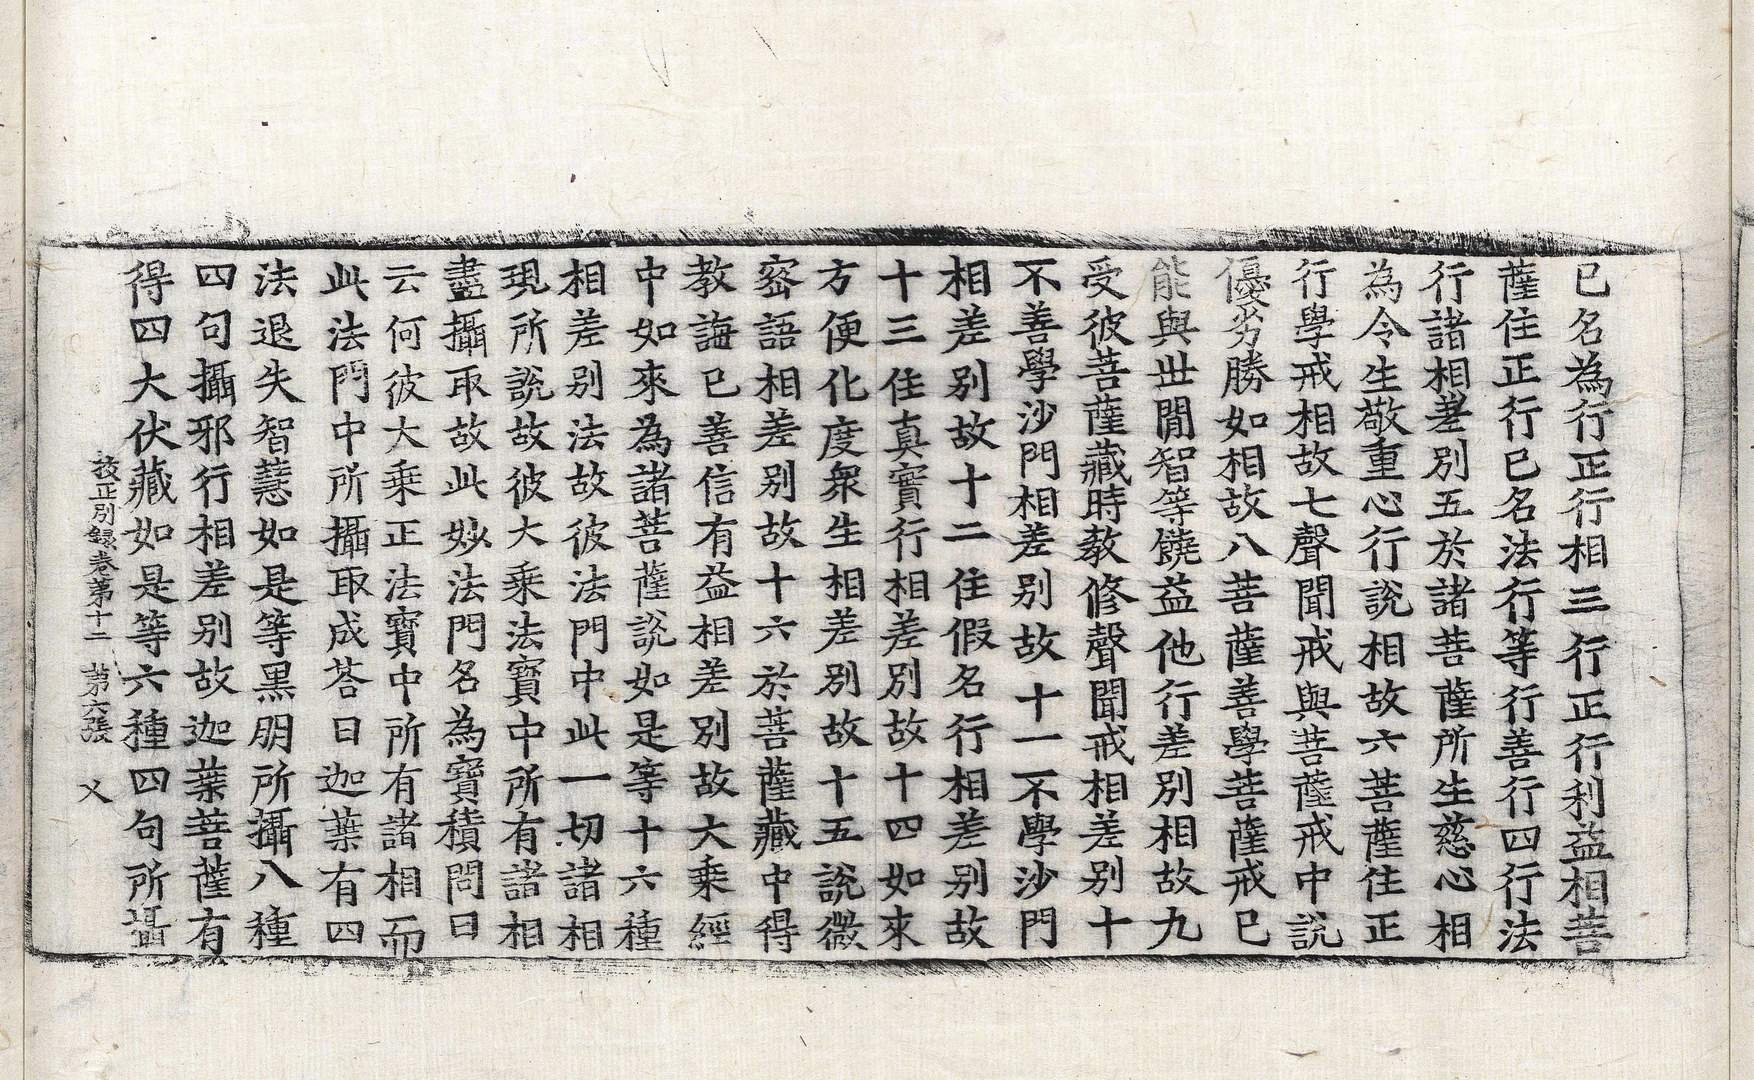 已名為行正行相三行正行利益相菩
薩住正行已名法行等行善行四行法
行諸相差別五於諸菩薩所生慈心相
為令生敬重心行說相故六菩薩住正
行學戒相故七聲聞戒與菩薩戒中說
優劣勝如相故八菩薩善學菩薩戒已
能與世間智等饒益他行差別相故九
受彼菩薩藏時教修聲聞戒相差別十
不善學沙門相差別故十一不學沙門
相差別故十二住假名行相差別故
十三住真實行相差別故十四如來
方便化度衆生相差別故十五說微
密語相差別故十六於菩薩藏中得
教誨已善信有益相差別故大乘經
中如來為諸菩薩說如是等十六種
相差別法故彼法門中此一切諸相
現所說故彼大乘法寶中所有諸相
盡攝取故此妙法門名為寶積問曰
云何彼大乘正法寶中所有諸相而
此法門中所攝取成荅曰迦葉有四
法退失智慧如是等黑朋所攝八種
四句攝邪行相差別故迦葉菩薩有
得四大伏藏如是等六種四句所攝
挍正別錄卷第十二　第六張　乂